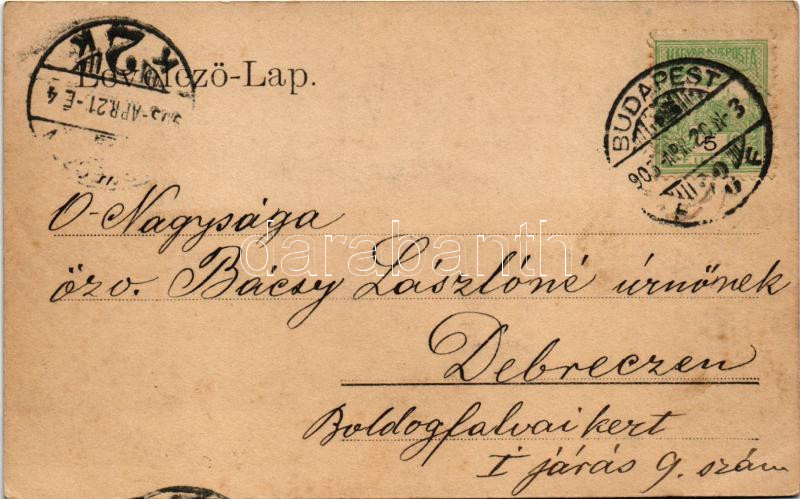 Levelező-Lap.
MAGYAR KIR. POSTA
BUDAPEST
903 APR. 20
5
F
2
K
APR. 21
É 4
Ő-Nagysága
özv. Bácsy Lászlóné úrnőnek
Debreczen
Boldogfalvai kert
I járás 9. szám
darabanth